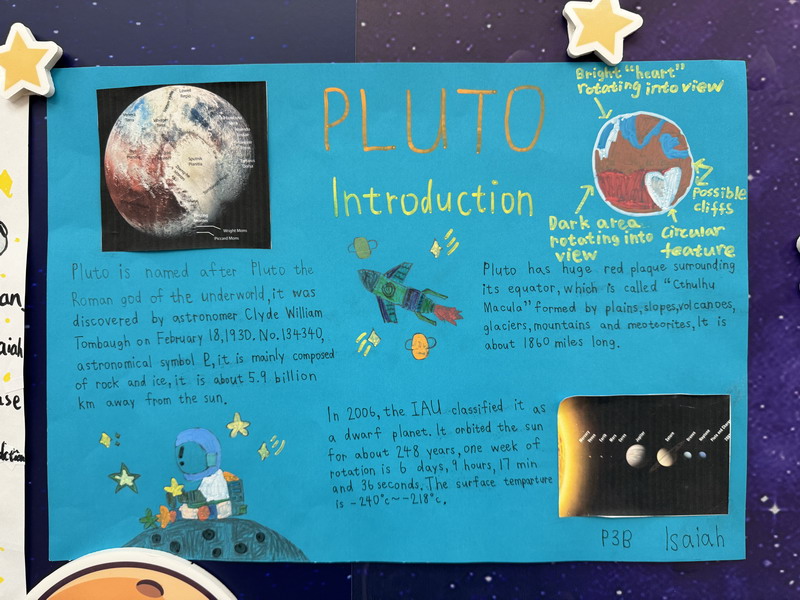 PLUTO
Introduction
Bright "heart"
rotating into view
Possible
cliffs
Circular
feature
Dark area
rotating into
view
Pluto is named after Pluto the
Roman god of the underworld, it was
discovered by astronomer Clyde William
Tombaugh on February 18,1930. No.134340,
astronomical symbol P, it is mainly composed
of rock and ice, it is about 5.9 billion
km away from the sun.
Pluto has huge red plaque surrounding
its equator, which is called "Cthulhu
Macula" formed by plains,slopes,volcanoes,
glaciers, mountains and meoteorites. It is
about 1860 miles long.
In 2006, the IAU classified it as
a dwarf planet. It orbited the sun
for about 248 years, one week of
rotation is 6 days, 9 hours, 17 min
and 36 seconds. The surface temparture
is -240°c~-218°c.
P3B Isaiah
Sputnik
Planitia
Wright Mons
Piccard Mons
aiah